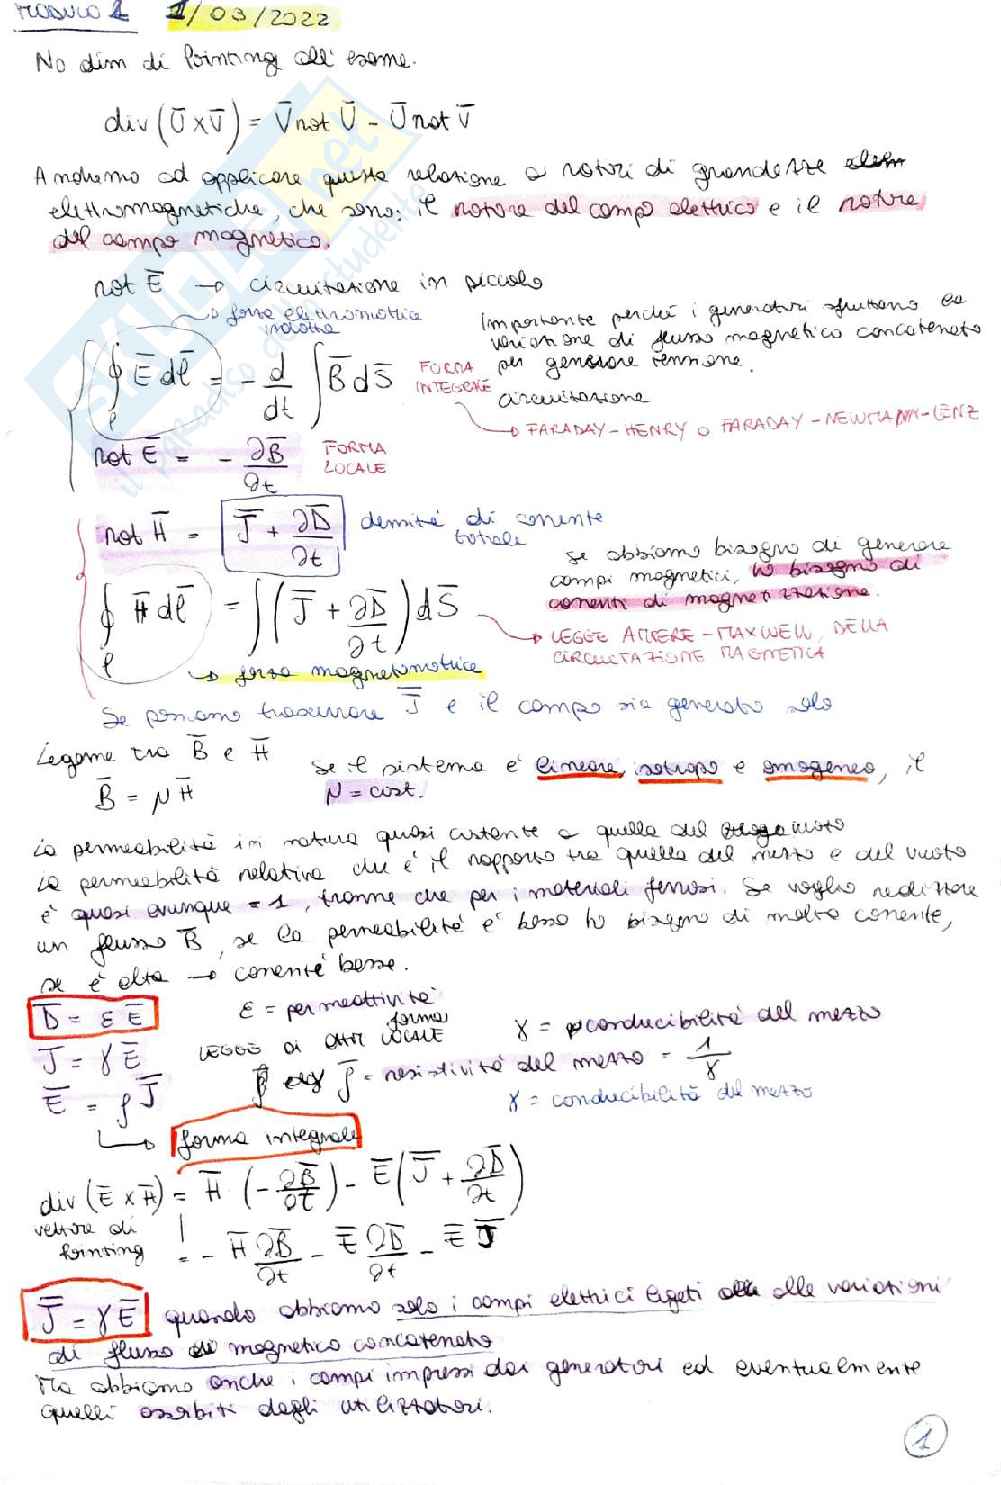 MODULO 1 1/03/2022
No dim di Pointing all'esame.
div (Ū x V̄) = V̄ rot Ū - Ū rot V̄
Andremo ad applicare questa relazione a rotori di grandezze
elettromagnetiche, che sono: il rotore del campo elettrico e il rotore
del campo magnetico.
rot Ē → circuitazione in piccolo
→ forza elettromotrice
indotta
Importante perché i generatori sfruttano la
variazione di flusso magnetico concatenato
per generare tensione.
∮ Ē dl̄ = - d/dt ∫ B̄ dS̄
l
FORMA
INTEGRALE
circuitazione
→ FARADAY-HENRY o FARADAY-NEWMANN-LENZ
rot Ē = - ∂B̄/∂t
FORMA
LOCALE
rot H̄ = J̄ + ∂D̄/∂t
densità di corrente
totale
Se abbiamo bisogno di generare
campi magnetici, ho bisogno di
correnti di magnetizzazione.
∮ H̄ dl̄ = ∫ (J̄ + ∂D̄/∂t) dS̄
l
→ LEGGE AMPERE-MAXWELL, DELLA
CIRCUITAZIONE MAGNETICA
→ forza magnetomotrice
Se possiamo trascurare J̄ e il campo sia generato solo
Legame tra B̄ e H̄
B̄ = μ H̄
Se il sistema è lineare, isotropo e omogeneo, il
μ = cost.
La permeabilità in natura quasi costante a quella del vuoto
La permeabilità relativa che è il rapporto tra quella del mezzo e del vuoto
è quasi ovunque = 1, tranne che per i materiali ferrosi. Se voglio
un flusso B̄, se la permeabilità è bassa ho bisogno di molta corrente,
se è alta → corrente basse.
D̄ = ε Ē
ε = permeattività
J̄ = γ Ē
LEGGE DI OHM forma LOCALE
γ = conducibilità del mezzo
Ē = ρ J̄
ρ = resistività del mezzo = 1/γ
γ = conducibilità del mezzo
→ forma integrale
div (Ē x H̄) = H̄ (- ∂B̄/∂t) - Ē (J̄ + ∂D̄/∂t)
vettore di
Pointing
= - H̄ ∂B̄/∂t - Ē ∂D̄/∂t - Ē J̄
J̄ = γ Ē quando abbiamo solo i campi elettrici legati alle variazioni
di flusso magnetico concatenato
Ma abbiamo anche i campi impressi dai generatori ed eventualmente
quelli assorbiti dagli utilizzatori.
1
SKUOLA.net
il paradiso dello studente